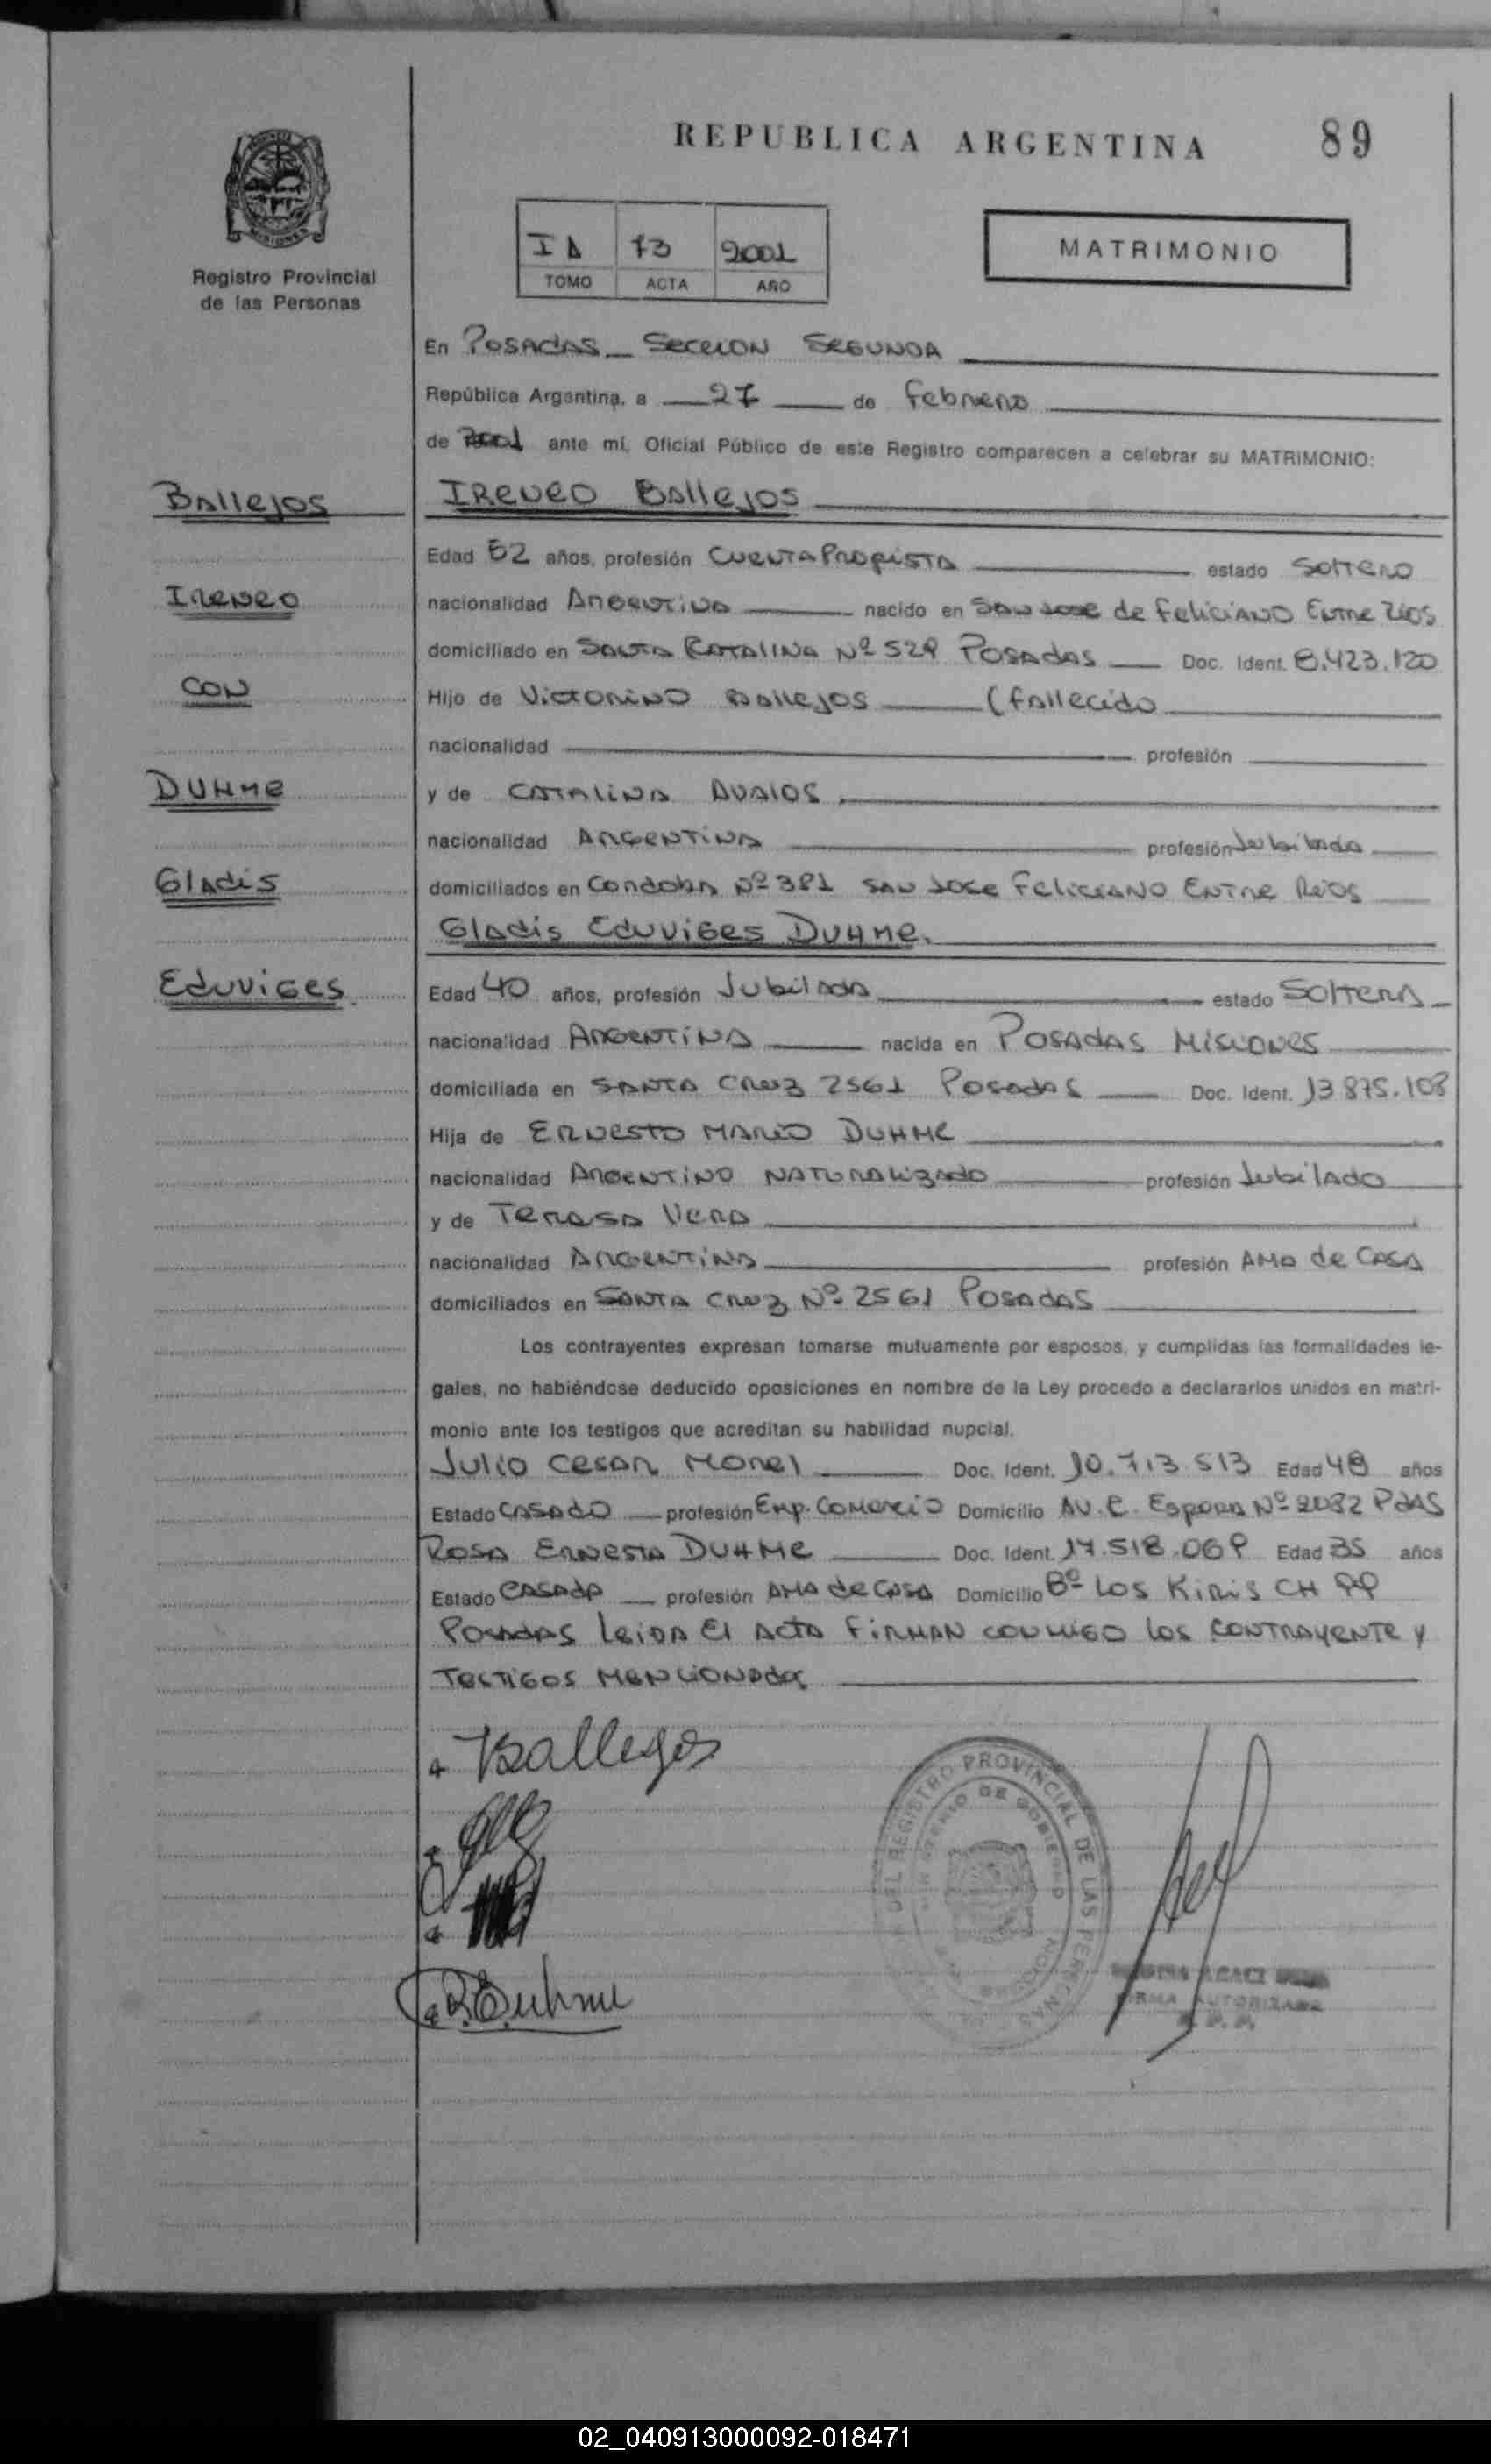 REPUBLICA ARGENTINA 89
Registro Provincial
de las Personas
MISIONES
I A 73 2001
TOMO ACTA AÑO
MATRIMONIO
En Posadas_ Seccion Segunda
República Argentina, a 27 de Febrero
de 2001 ante mí, Oficial Público de este Registro comparecen a celebrar su MATRIMONIO:
Ballejos
Ireneo
CON
DUHME
Gladis
Eduviges
Ireneo Ballejos
Edad 52 años, profesión Cuenta Propista estado Soltero
nacionalidad Argentina nacido en San Jose de Feliciano Entre Rios
domiciliado en Santa Catalina Nº 529 Posadas Doc. Ident. 8.423.120
Hijo de Victorino Ballejos (fallecido
nacionalidad profesión
y de Catalina Avalos
nacionalidad Argentina profesión Jubilada
domiciliados en Cordoba Nº 381 San Jose Feliciano Entre Rios
Gladis Eduviges Duhme.
Edad 40 años, profesión Jubilada estado Soltera
nacionalidad Argentina nacida en Posadas Misiones
domiciliada en Santa Cruz 2561 Posadas Doc. Ident. 13 875.108
Hija de Ernesto Mario Duhme
nacionalidad Argentino Naturalizado profesión Jubilado
y de Teresa Vera
nacionalidad Argentina profesión Ama de Casa
domiciliados en Santa Cruz Nº 2561 Posadas
Los contrayentes expresan tomarse mutuamente por esposos, y cumplidas las formalidades le-
gales, no habiéndose deducido oposiciones en nombre de la Ley procedo a declararlos unidos en matri-
monio ante los testigos que acreditan su habilidad nupcial.
Julio Cesar Morel Doc. Ident. 10.713.513 Edad 48 años
Estado Casado profesión Emp. Comercio Domicilio Av. C. Espora Nº 2032 Pdas
Rosa Ernesta Duhme Doc. Ident. 17.518.069 Edad 35 años
Estado Casada profesión Ama de Casa Domicilio Bº Los Kiris CH 99
Posadas leida el Acta Firman conmigo los contrayente y
Testigos mencionados
Ballejos
R.E.Duhme
REGISTRO PROVINCIAL DE LAS PERSONAS
MINISTERIO DE GOBIERNO
FIRMA AUTORIZADA
02_040913000092-018471